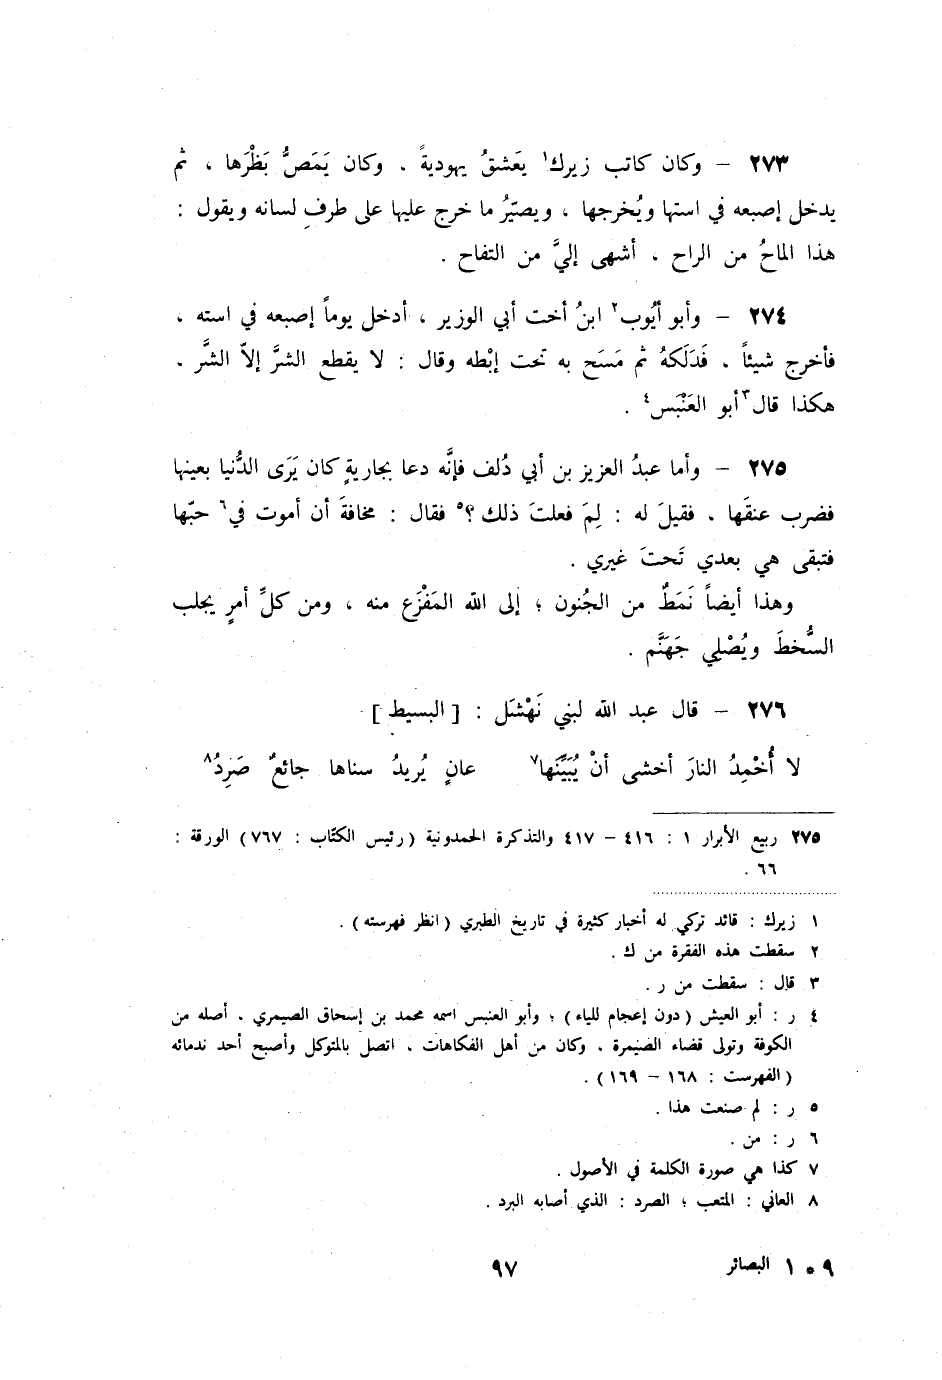 ٢٧٣ – وكان كاتب زيرك١ يَعَشقُ يهوديةً . وكان يَمَصُّ بَظْرَها ، ثم
يدخل إصبعه في استها ويُخرجها ، ويصيّرُ ما خرج عليها على طرفِ لسانه ويقول :
هذا الماحُ من الراح ، أشهى إليَّ من التفاح .
٢٧٤ – وأبو أيُوب٢ ابنُ أخت أبي الوزير ، أدخل يوماً إصبعه في استه ،
فأخرج شيئاً ، فَدَلَكهُ ثم مَسَح به تحت إبْطه وقال : لا يقطع الشرَّ إلاّ الشَّر .
هكذا قال٣ أبو العَنْبَس٤ .
٢٧٥ – وأما عبدُ العزيز بن أبي دُلف فإنَّه دعا بجاريةٍ كان يَرَى الدُّنيا بعينها
فضرب عنقَها . فقيلَ له : لِمَ فعلتَ ذلك ؟٥ فقال : مخافةَ أن أموت في٦ حبّها
فتبقى هي بعدي تَحتَ غيري .
وهذا أيضاً نَمَطٌ من الجُنون ؛ إلى الله المَفْزَع منه ، ومن كلِّ أمرٍ يجلب
السُّخطَ ويُصْلي جَهَنَّم .
٢٧٦ – قال عبد الله لبني نَهْشَل : [ البسيط ]
لا أُخْمِدُ النارَ أخشى أنْ يُبَيِّنَها٧ عانٍ يُريدُ سناها جائعٌ صَرِدُ٨
٢٧٥ ربيع الأبرار ١ : ٤١٦ – ٤١٧ والتذكرة الحمدونية (رئيس الكتّاب : ٧٦٧) الورقة :
٦٦ .
١ زيرك : قائد تركي له أخبار كثيرة في تاريخ الطبري (انظر فهرسته) .
٢ سقطت هذه الفقرة من ك .
٣ قال : سقطت من ر .
٤ ر : أبو العيش (دون إعجام للياء) ؛ وأبو العنبس اسمه محمد بن إسحاق الصيمري ، أصله من
الكوفة وتولى قضاء الصيمرة ، وكان من أهل الفكاهات ، اتصل بالمتوكل وأصبح أحد ندمائه
(الفهرست : ١٦٨ – ١٦٩) .
٥ ر : لم صنعت هذا .
٦ ر : من .
٧ كذا هي صورة الكلمة في الأصول .
٨ العاني : المتعب ؛ الصرد : الذي أصابه البرد .
٩ * ١ البصائر ٩٧